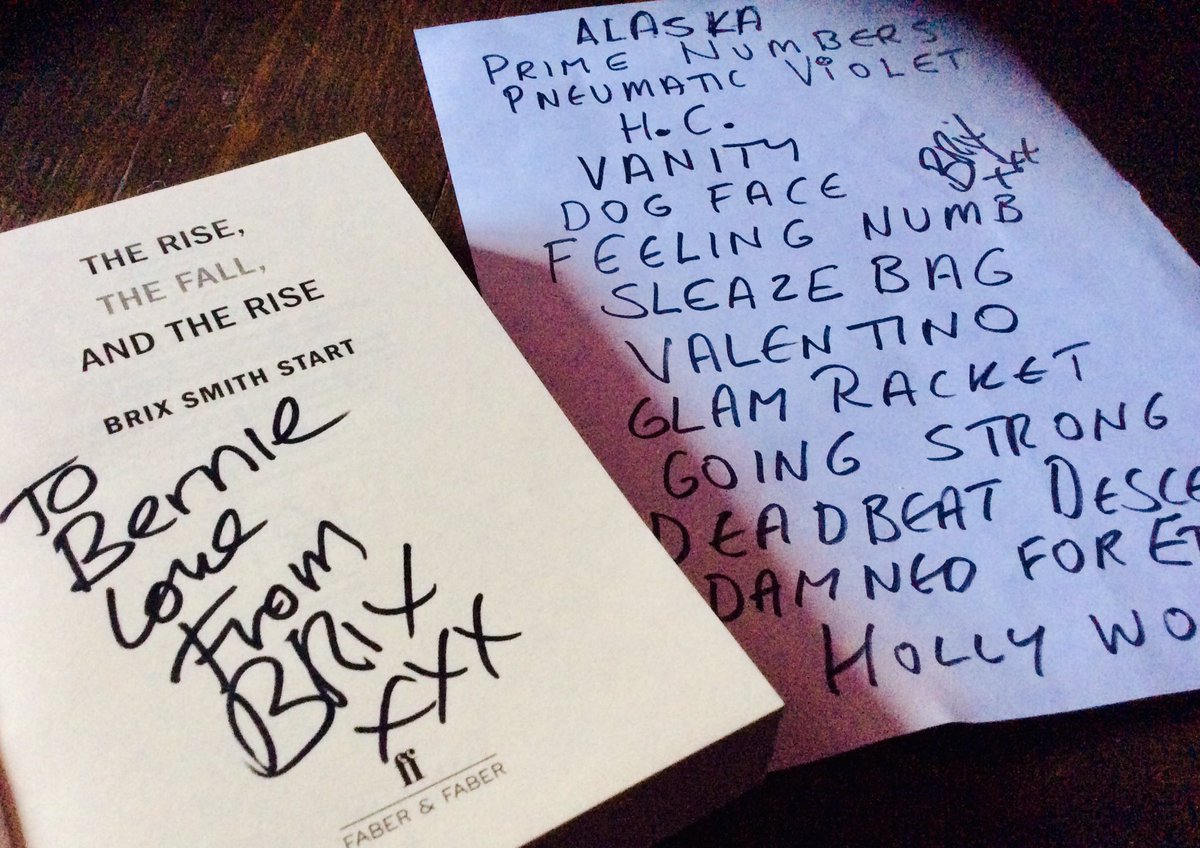 THE RISE,
THE FALL,
AND THE RISE
BRIX SMITH START
TO
Bernie
Love
From
BRIX
xxx
ff
FABER & FABER
ALASKA
PRIME NUMBERS
PNEUMATIC VIOLET
H.C.
VANITY
BRIX
xxx
DOG FACE
FEELING NUMB
SLEAZE BAG
VALENTINO
GLAM RACKET
GOING STRONG
DEADBEAT DESCE
DAMNED FOR ET
HOLLY WO